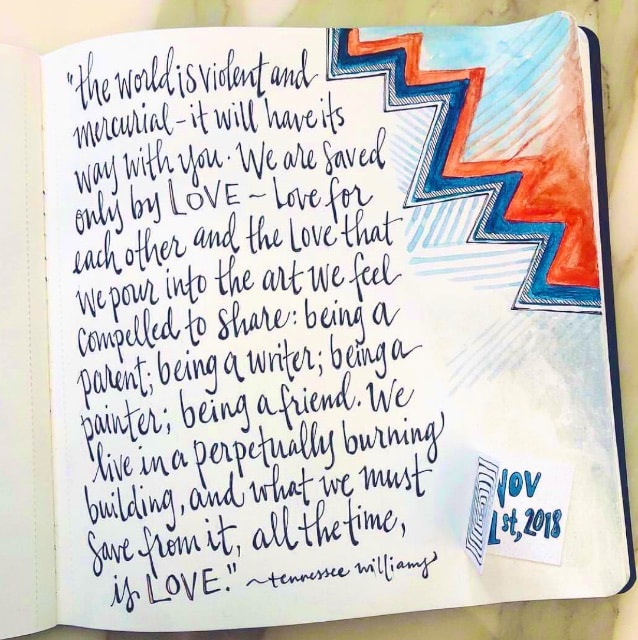 "the world is violent and
mercurial - it will have its
way with you. We are saved
only by LOVE ~ Love for
each other and the Love that
we pour into the art we feel
compelled to share: being a
parent; being a writer; being a
painter; being a friend. We
live in a perpetually burning
building, and what we must
save from it, all the time,
is LOVE." ~tennessee williams
NOV
1st, 2018